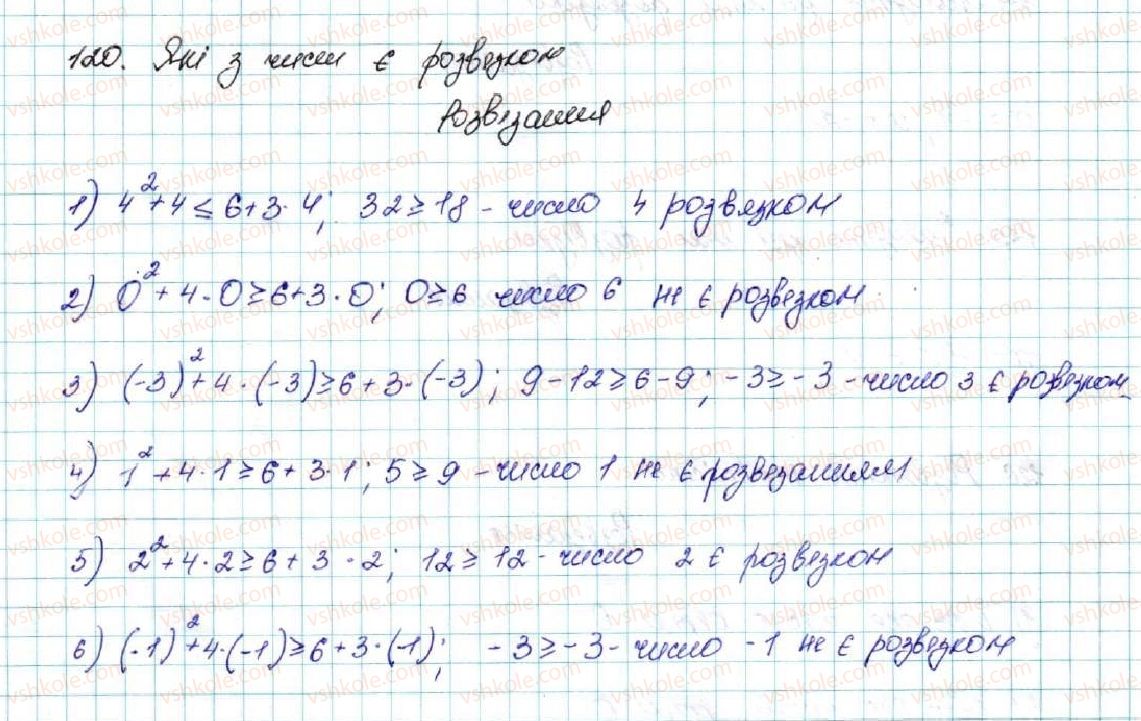 120. Які з чисел є розвязком
Розвязання
1) 4²+4 ≤ 6+3·4; 32 ≥ 18 - число 4 розвязком
2) 0²+4·0 ≥ 6+3·0; 0 ≥ 6 число 6 не є розвязком
3) (-3)²+4·(-3) ≥ 6+3·(-3); 9-12 ≥ 6-9; -3 ≥ -3 - число 3 є розвязком
4) 1²+4·1 ≥ 6+3·1; 5 ≥ 9 - число 1 не є розвязанням
5) 2²+4·2 ≥ 6+3·2; 12 ≥ 12 - число 2 є розвязком
6) (-1)²+4·(-1) ≥ 6+3·(-1); -3 ≥ -3 - число -1 не є розвязком
vshkole.com